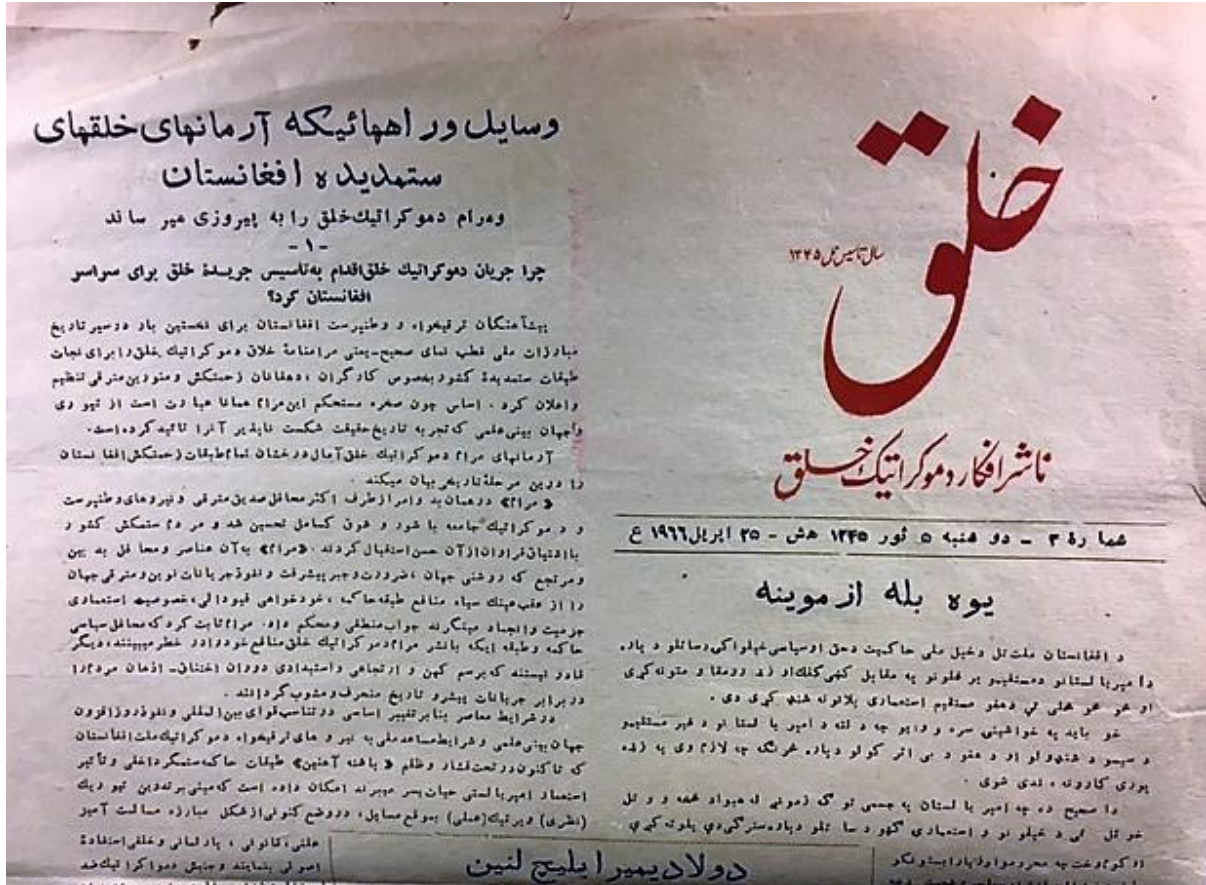 خلق
سال تاسیس حمل ۱۳۴۵
ناشر افکار دموکراتیک خلق
شمارهٔ ۳ – دوشنبه ۵ ثور ۱۳۴۵ هش – ۲۵ اپریل ۱۹۶۶ ع
یوه بله ازموینه
د افغانستان ملت تل د خپل ملی حاکمیت د حق او سیاسی خپلواکی د ساتلو د پاره
د امپریالستانو د مستقیمو یرغلونو په مقابل کښی کلک او زړه ورمقاومتونه کړی
او هو هو ځلی ئی دهغو مستقیم استعماری پلانونه شنډ کړی دی .
خو باید په خواشینی سره ووایو چه دلته د امپریالستانو د غیر مستقیمو
دسیسو د شنډولو او د هغو د بی اثر کولو دپاره څرنګه چه لازم وی په زړه
پوری کارونه ، ندی شوی .
دا صحیح ده چه امپریالستان په جسمی توګه زمونږ له هیواد څخه وو تل
وسایل و راههائیکه آرمانهای خلقهای
ستمدیده افغانستان
ومرام دموکراتیك خلق را به پیروزی میرساند
-۱-
چرا جریان دموکراتیك خلق اقدام به تاسیس جریدهٔ خلق برای سراسر
افغانستان کرد؟
پیشآهنگان ترقیخواه و وطنپرست افغانستان برای نخستین بار در سیر تاریخ
مبارزات ملی قطب نمای صحیح-یعنی مرامنامهٔ خلاق دموکراتیك خلق را برای نجات
طبقات ستمدیدهٔ کشور بخصوص کارگران ، دهقانان زحمتکش و منورین مترقی تنظیم
و اعلان کرد . اساس چون صخره مستحکم این مرام همانا عبارت است از تیوری
و جهان بینی علمی که تجربه تاریخ حقیقت شکست ناپذیر آنرا تائید کرده است.
آرمانهای مرام دموکراتیك خلق آمال درخشان تمام طبقات زحمتکش افغانستان
را درین مرحلهٔ تاریخی بیان میکند .
«مرام» در همان بدو امر از طرف اکثر محافل صدیق مترقی و نیروهای وطنپرست
و دموکراتیك جامعه با شور و شوق کامل تحسین شد و مردم ستمکش کشور
با اشتیاق فراوان از آن حسن استقبال کردند. «مرام» به آن عناصر و محافل بدبین
و مرتجع که روشنی جهان ، ضرورت و جبر پیشرفت و نفوذ جریانات نوین و مترقی جهان
را از عقب عینك سیاه منافع طبقه حاکمه ، خودخواهی فیودالی، خصوصیت استعماری
جزمیت و انجماد مینگرند جواب منطقی و محکم داد. مرام ثابت کرد که محافل سیاسی
حاکمه و طبقه ایکه با نشر مرام دموکراتیك خلق منافع خود را در خطر میبینند، دیگر
قادر نیستند که برسم کهن و ارتجاعی و استبدادی دوران اختناق- اذهان مردم را
در برابر جریانات پیشرو تاریخ منحرف و مشوب گردانند .
در شرایط معاصر بنا بر تغییر اساسی در تناسب قوای بین المللی و نفوذ روز افزون
جهان بینی علمی و شرایط مساعد ملی به نیروهای ترقیخواه دموکراتیك ملت افغانستان
که تا کنون در تحت فشار و ظلم «پاشنه آهنین» طبقات حاکمه ستمگر داخلی و تأثیر
استعمار امپریالستی حیات بسر میبرند امکان داده است که مبنی برتدوین تیوریك
(نظری) و پرتیك (عملی) بموقع مسایل، در وضع کنونی از شکل مبارزه مسالمت آمیز
علنی، قانونی ، پارلمانی و خلقی استفادهٔ
اصولی بنمایند و جنبش دموکراتیك ضد
دولادیمیر ایلیچ لنین